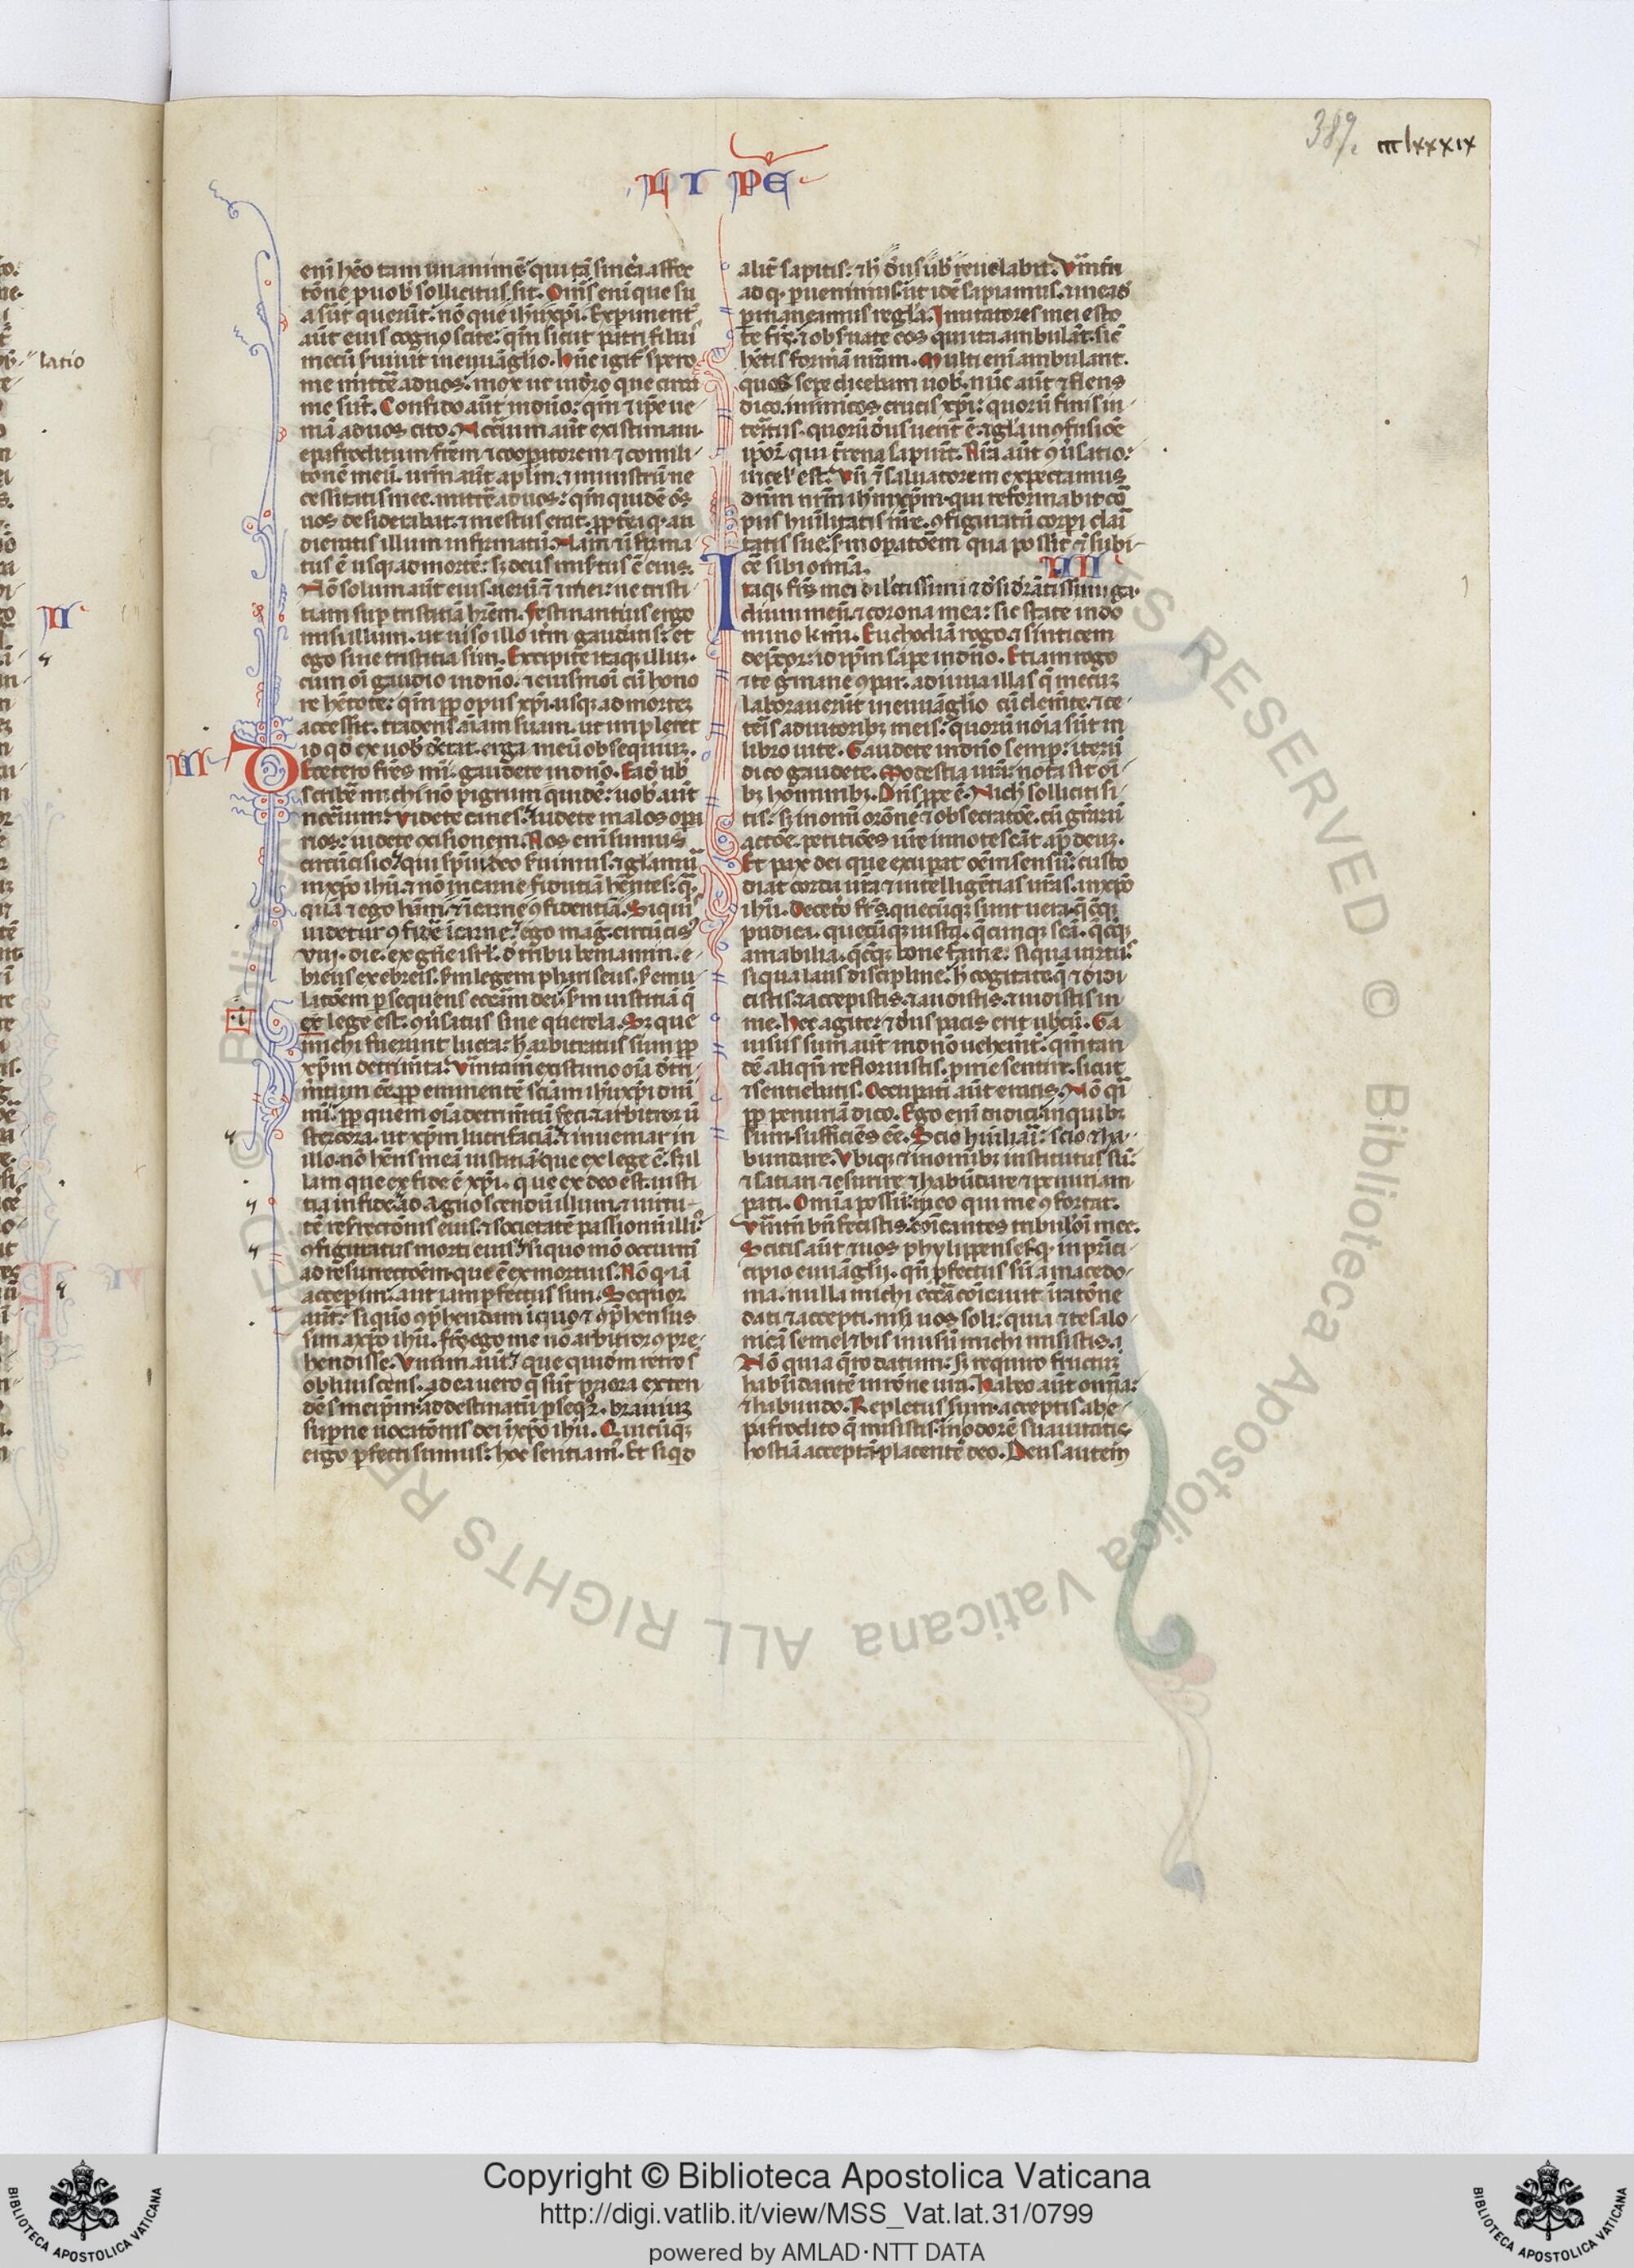 387.
ccclxxxix
LI PE
latio
II
enī hēo tam unanimē qui tā sincera affec
tōne p uob sollicitus sit. Om̄s enī que su
a sūt querūt: nō que ihū xp̄i. Experimentū
aūt eius cognoscite: qm̄ sicut patri filius
mecū seruiuit in euuāglio. Hūc igit̄ spero
me mittē ad uos. mox ut uidero que circa
me sūt. Confido aūt in dn̄o: qm̄ ⁊ ip̄e ue
niā ad uos cito. Necc̄ium aūt existimaui
epafroditum frēm ⁊ cooperatorem ⁊ comili
tonē meū. ur̄m aūt aplm̄. ⁊ ministrū ne
cessitatis mee. mittē ad uos: qm̄ quidē om̄s
uos desiderabat. ⁊ mestus erat. ppt̄ea q̄ au
dieratis illum infirmatū. Nam ⁊ infirma
tus ē usq; ad mortē: sꝫ deus mis̄tus ē eius.
Nō solum aūt eius. uerū ⁊ mei: ne tristi
tiam sup tristitiā hr̄em. Festinantius ergo
misi illum. ut uiso illo itm̄ gaudatis: et
ego sine tristitia sim. Excipite itaq; illuꝫ.
cum oī gaudio in dn̄o. ⁊ eiusmōi cū hono
re hētote: qm̄ pp opus xp̄i. usq; ad morteꝫ
accessit. tradens aīam suam. ut impleret
id qd̄ ex uob deerat. erga meū obsequiuꝫ.
III
De cetero fr̄es mī. gaudete in dn̄o. Eadē ub̄
scribē michi nō pigrum quidē: uob aūt
nccīum: Videte canes. uidete malos opa
rios: uidete ↄcisionem. Nos enī sumus
circūcisio: qui spū deo seruimus. ⁊ glāmur
in xp̄o ihū. ⁊ nō in carne fidutiā hn̄tes: q̄ꝫ
quā ⁊ ego hām ⁊ ī carne ↄfidentiā. Siquis
uidetur ↄfidē ī carne: ego mag̃. circūcis
viij. die. ex gn̄e isrl̄. d̄ tribu beniamin. e
breus ex ebreis. s̄m legem phariseus. s̄ emu
latōem psequens ecc̄am dei. s̄m iustitiā q̄
ex lege est. ↄūsatus sine querela. Sꝫ que
michi fuerunt lucra: h̄ arbitratus sum pp
xp̄m detrim̄ta. Vm̄tam̄ existimo oīa d̄tri
m̄tum ēē. pp eminentē scīam ihū xp̄i dn̄i
mī. pp quem oīa detrim̄tū feci. ⁊ arbitror ū
stercora. ut xp̄m lucrifaciā. ⁊ inueniar in
illo. nō hn̄s meā iustitiā que ex lege ē. sꝫ il
lam que ex fide ē xp̄i. que ex deo est. iusti
tia in fide. ad agnoscendū illum. ⁊ uirtu
tē resrectionis eius. ⁊ societatē passionū illi⁹
ↄfiguratus morti eius: siquo mō occurrā
ad resurrectōem. que ē ex mortuis. Nō q̄ iā
acceperim. aut iam pfectus sim. Sequor
aūt: siquo ↄp̄hendam ī quo ⁊ ↄp̄hensus
sum a xp̄o ihū. fr̄es ego me nō arbitror ↄpre
hendisse. Vnum aūt: que quidm̄ retro s̄
obliuiscens. ad ea uero q̄ sūt priora exten
dēs meip̄m: ad destinatū psequor. brauiuꝫ
supne uocatōnis dei in xp̄o ihū. Quicūq;
ergo pfecti sumus: hoc sentiam⁹. Et siqd̄
alit̄ sapitis: ⁊ h̄ deus ub̄ reuelabit. Vm̄tn̄
ad q̄ puenimus. ut idē sapiamus. ⁊ in eadē
pmaneamus regla. Imitatores mei esto
te fr̄es. ⁊ obs̄uate eos qui ita ambulāt. sic̄
hētis formā nr̄am. Multi enī ambulant.
quos sepe dicebam uob. nūc aūt ⁊ flens
dico. inimicos crucis xp̄i: quorū finis in
teritus. quorū deus uent̄ ē. ⁊ glā in ↄfusiōe
ip̄oꝝ. qui t̄rena sapiūt. Nr̄a aūt ↄūsatio:
in cel̄ est. Vn̄ ⁊ saluatorem expectamus
dn̄m nr̄m ihm̄ xp̄m. qui reformabit cor
pus hu͞ilitatis nr̄e. ↄfiguratū corpi clari
tatis sue. s̄m opatōem qua possit ⁊ subi
cē sibi omīa.
IIII
Itaq; fr̄es mei dilectissimi ⁊ desiderātissimi. ga
dium meū. ⁊ corona mea: sic state in do
mino kmī. Euchodiā rogo. ⁊ sinticem
dep̄cor: id ip̄m sape in dn̄o. Etiam rogo
⁊ te g̃mane ↄpar. adiuua illas q̄ mecuꝫ
laborauerūt in euuāglio cū clem̄te. ⁊ ce
t̄is adiutoribꝫ meis: quorū noīa sūt in
libro uite. Gaudete in dn̄o semp: iterū
dico gaudete. Modestia ur̄a: nota sit oī
bꝫ hominibꝫ. Dn̄s ppe ē. Nich̄ solliciti si
tis: sꝫ in omī orōne ⁊ obsecratōe. cū gr̄arū
actōe. petitiōes ur̄e innotescāt ap̄ deuꝫ.
Et pax dei que exupat oēm sensū: custo
diat corda ur̄a ⁊ intelligētias ur̄as. in xp̄o
ihū. Decetō fr̄es. quecūq; sunt uera. q̄cūq;
pudica. quecūq; iusta. q̄cunq; scā. q̄cūq;
amabilia. q̄cūq; bone fame. siqua uirtus
siqua laus discipline. h̄ cogitate. q̄ ⁊ didi
cistis. ⁊ accepistis. ⁊ audistis. ⁊ uidistis in
me. Hec agite: ⁊ deus pacis erit ubcū. Ga
uisus sum aūt in dn̄o uehem̄t. qm̄ tan
dē aliqn̄ refloruistis. p me sentire. sicut
⁊ sentiebatis. Occupati aūt eratis. Nō q̄i
pp penuriā dico. Ego enī didici. in quibꝫ
sum. sufficiēs ēē. Scio hu͞iliari: scio ⁊ ha
bundare. Vbiq; ⁊ in om̄ibꝫ institutus sū:
⁊ satiari ⁊ esurire. ⁊ habūdare ⁊ penuriam
pati. Omīa possū: in eo qui me ↄfortat.
Vm̄tn̄ bn̄ fecistis. cōicantes tribul̄oī mee.
Scitis aūt ⁊ uos phylippenses. q̄ in pri̅ci
cipio euuāglii. qn̄ pfectus sū a macedo
nia. nulla michi ecc̄a cōicauit ī ratōne
dati ⁊ accepti. nisi uos soli: quia ⁊ tesalo
nicā semel ⁊ bis in usū michi misistis.
Nō quia q̄ro datum: sꝫ requiro fructuꝫ
habūdantē in rōne ur̄a. Habeo aūt omīa:
⁊ habundo. Repletus sum. acceptis. ab e
pafrodito q̄ misistis. in odorē suauitatis
hostiā acceptā. placentē deo. Deus autem
Copyright © Biblioteca Apostolica Vaticana
http://digi.vatlib.it/view/MSS_Vat.lat.31/0799
powered by AMLAD·NTT DATA
BIBLIOTECA APOSTOLICA VATICANA
BIBLIOTECA APOSTOLICA VATICANA